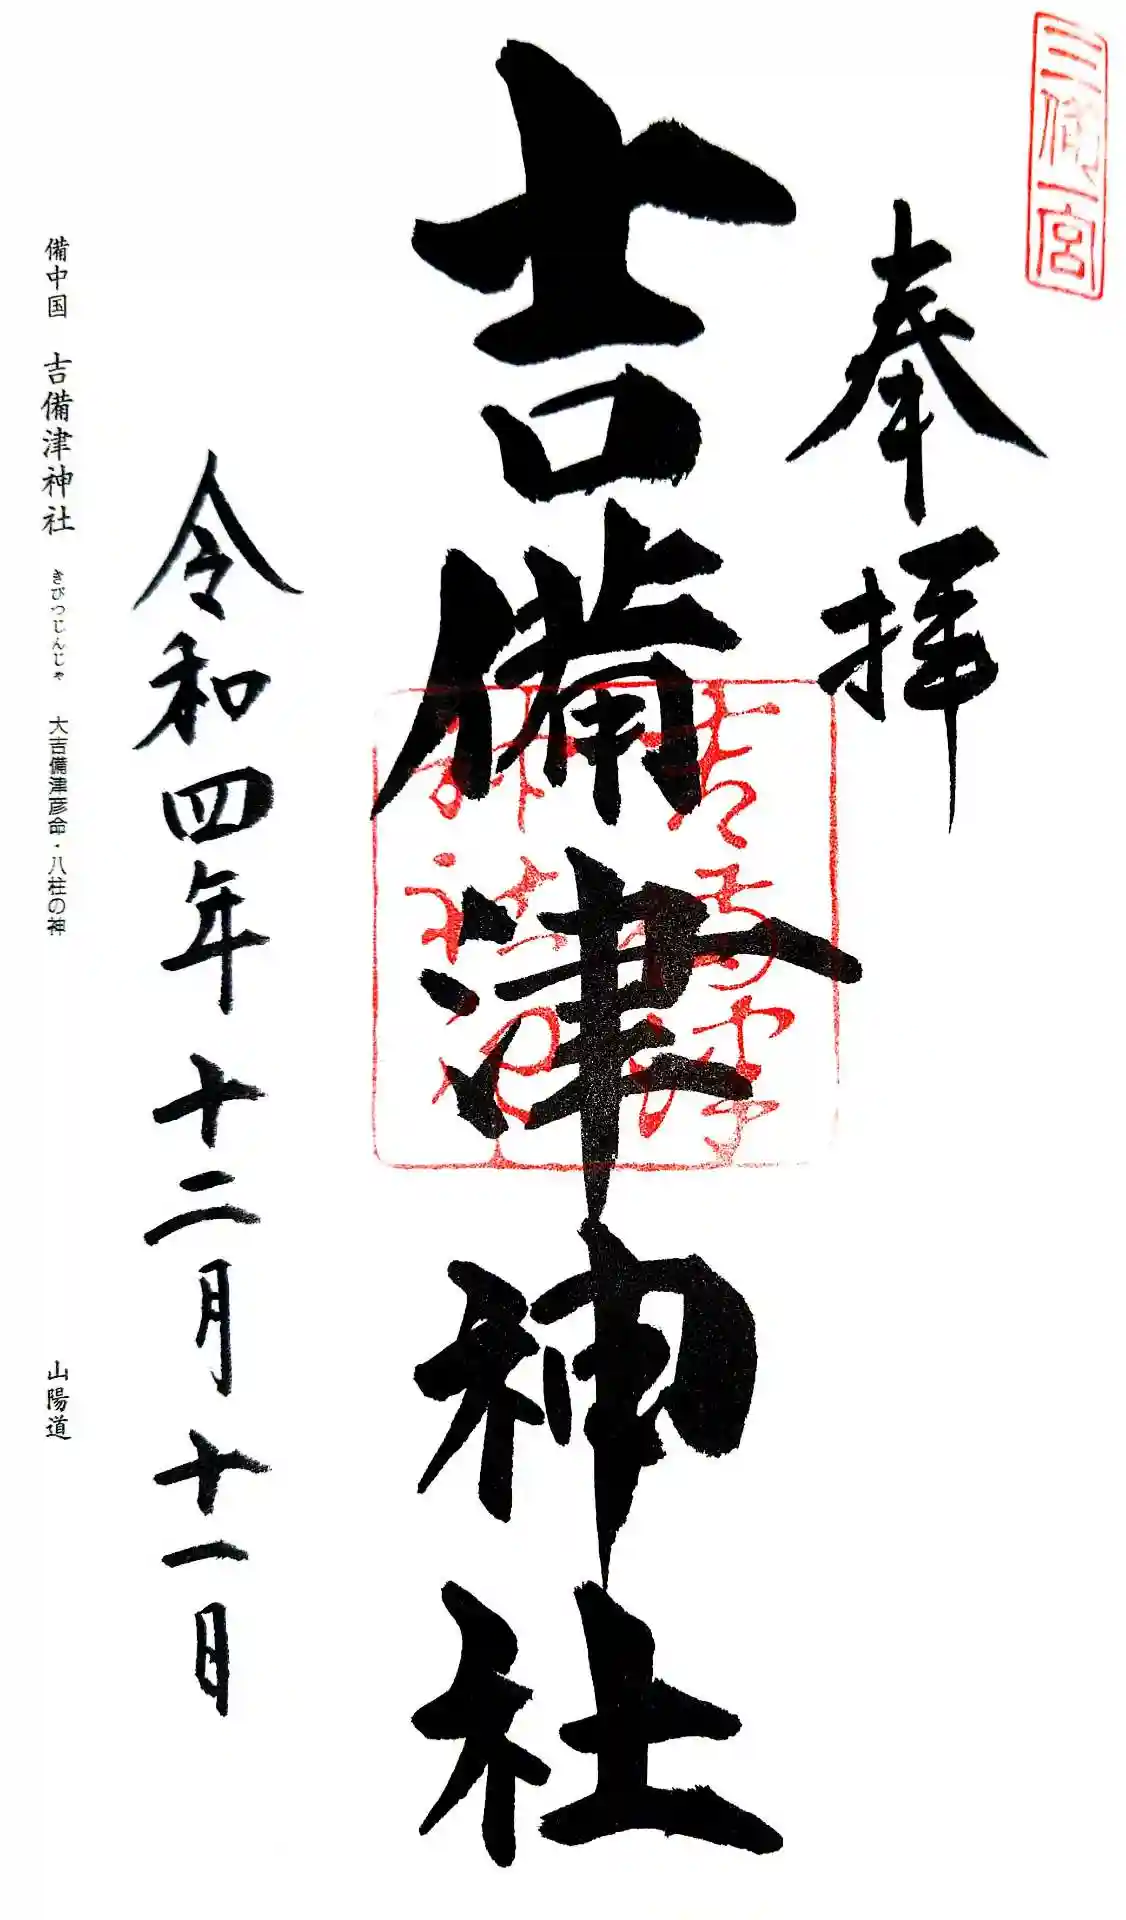 三備一宮
奉拝
吉備津神社
令和四年十二月十一日
備中国 吉備津神社 きびつじんじゃ 大吉備津彦命・八柱の神 山陽道